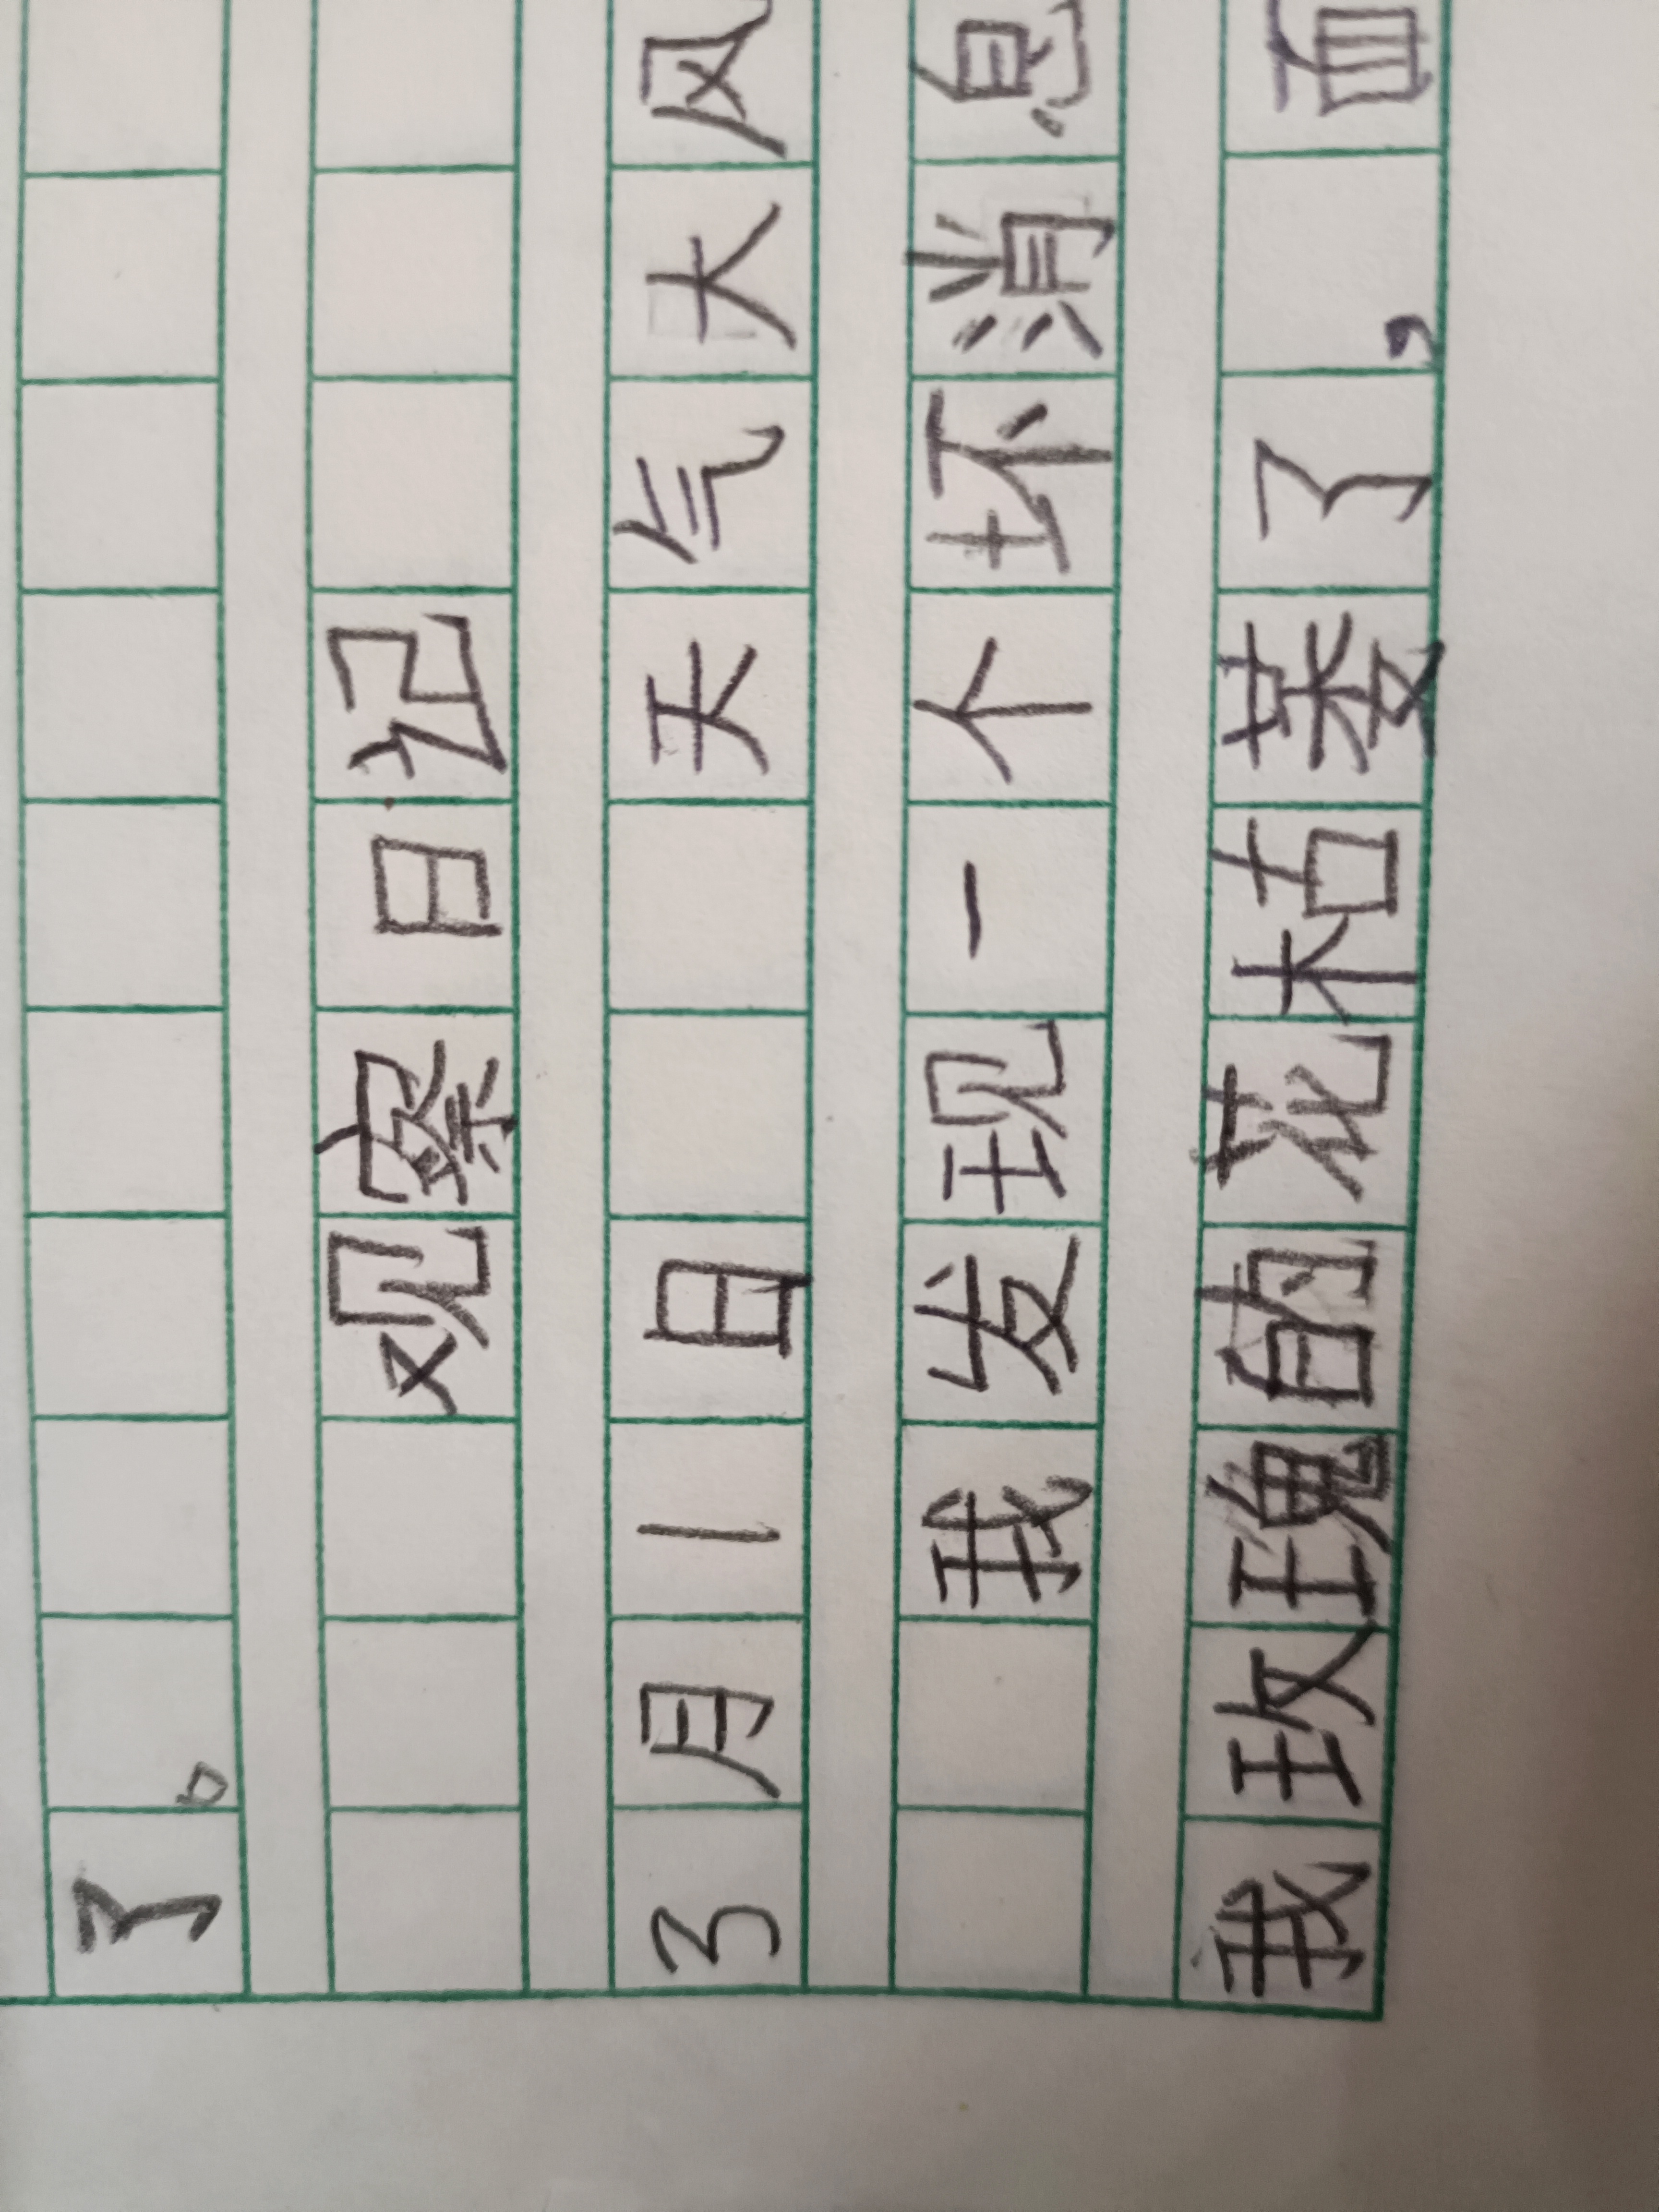 了。
观察日记
3月1日 天气大风
我发现一个坏消息
我玫瑰的花枯萎了，面